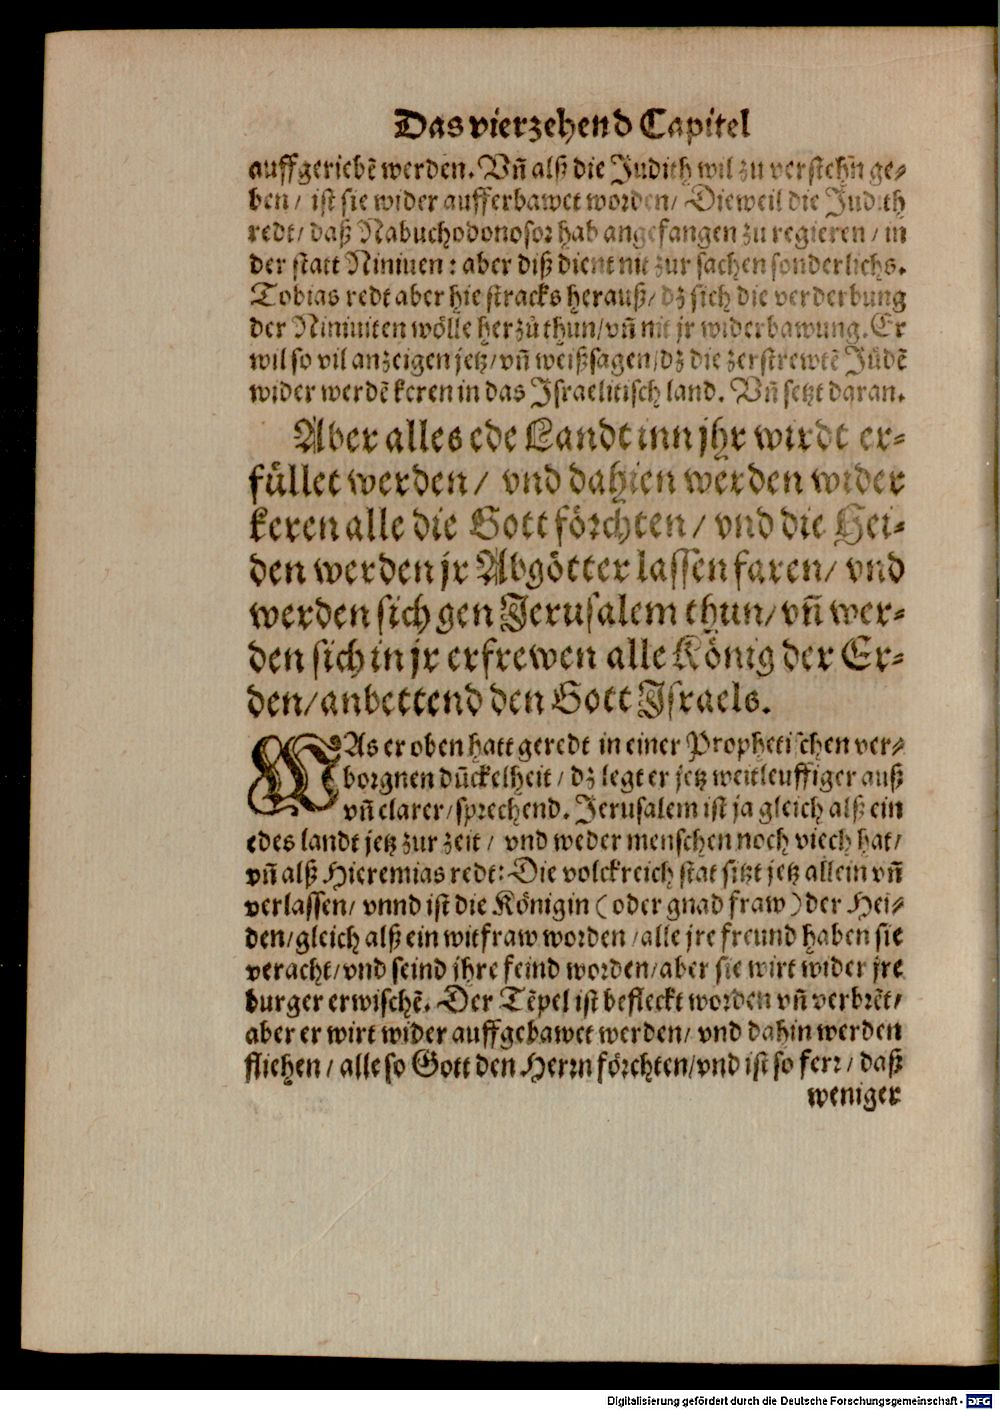 Das vierzehend Capitel
auffgeriebē werden. Vn̄ alß die Judith wil zu verstehn̄ ge⸗
ben / ist sie wider aufferbawet worden / Dieweil die Judith
redt / daß Nabuchodonosor hab angefangen zu regieren / in
der statt Niniuen : aber diß dient nit zur sachen sonderlichs.
Tobias redt aber hie stracks herauß / dz sich die verderbung
der Niniuiten wölle herzů thun / vn̄ nit jr widerbawung. Er
wil so vil anzeigen jetz / vn̄ weißsagen / dz die zerstrewtē Jüdē
wider werdē keren in das Israelitisch land. Vn̄ setzt daran.
Aber alles ede Landt inn jhr wirdt er⸗
füllet werden / vnd dahien werden wider
keren alle die Gott förchten / vnd die Hei⸗
den werden jr Abgötter lassen faren / vnd
werden sich gen Jerusalem thun / vn̄ wer⸗
den sich in jr erfrewen alle König der Er⸗
den / anbettend den Gott Israels.
WAs er oben hatt geredt in einer Prophetischen ver⸗
borgnen dūckelheit / dz legt er jetz weitleuffiger auß
vn̄ clarer / sprechend. Jerusalem ist ja gleich alß ein
edes landt jetz zur zeit / vnd weder menschen noch viech hat /
vn̄ alß Hieremias redt : Die volckreich stat sitzt jetz allein vn̄
verlassen / vnnd ist die Königin ( oder gnad fraw ) der Hei⸗
den / gleich alß ein witfraw worden / alle jre freund haben sie
veracht / vnd seind jhre feind worden / aber sie wirt wider jre
burger erwischē. Der Tēpel ist befleckt worden vn̄ verbrēt /
aber er wirt wider auffgebawet werden / vnd dahin werden
fliehen / alle so Gott den Herrn förchten / vnd ist so ferr / daß
weniger
Digitalisierung gefördert durch die Deutsche Forschungsgemeinschaft - DFG